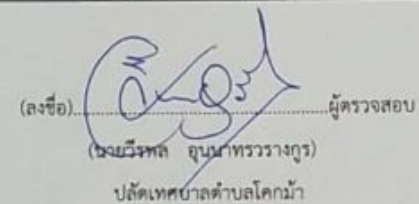 (ลงชื่อ)..............................ผู้ตรวจสอบ
(นายวีรพล อุนนาทรวรางกูร)
ปลัดเทศบาลตำบลโคกม้า